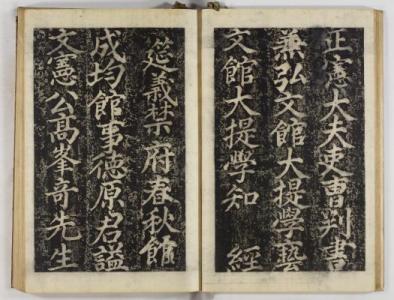 正憲大夫吏曹判書
兼弘文館大提學藝
文館大提學知 經
筵義禁府春秋館
成均館事德原君諡
文憲公高峯奇先生